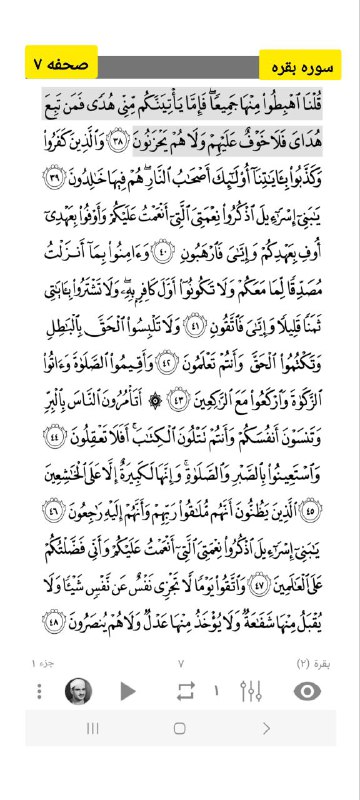 صحفه ۷
سوره بقره
قُلْنَا ٱهْبِطُوا۟ مِنْهَا جَمِيعًا ۖ فَإِمَّا يَأْتِيَنَّكُم مِّنِّى هُدًى فَمَن تَبِعَ
هُدَاىَ فَلَا خَوْفٌ عَلَيْهِمْ وَلَا هُمْ يَحْزَنُونَ ٣٨ وَٱلَّذِينَ كَفَرُوا۟
وَكَذَّبُوا۟ بِـَٔايَـٰتِنَآ أُو۟لَـٰٓئِكَ أَصْحَـٰبُ ٱلنَّارِ ۖ هُمْ فِيهَا خَـٰلِدُونَ ٣٩
يَـٰبَنِىٓ إِسْرَٰٓءِيلَ ٱذْكُرُوا۟ نِعْمَتِىَ ٱلَّتِىٓ أَنْعَمْتُ عَلَيْكُمْ وَأَوْفُوا۟ بِعَهْدِىٓ
أُوفِ بِعَهْدِكُمْ وَإِيَّـٰىَ فَٱرْهَبُونِ ٤٠ وَءَامِنُوا۟ بِمَآ أَنزَلْتُ
مُصَدِّقًا لِّمَا مَعَكُمْ وَلَا تَكُونُوٓا۟ أَوَّلَ كَافِرٍۭ بِهِۦ ۖ وَلَا تَشْتَرُوا۟ بِـَٔايَـٰتِى
ثَمَنًا قَلِيلًا وَإِيَّـٰىَ فَٱتَّقُونِ ٤١ وَلَا تَلْبِسُوا۟ ٱلْحَقَّ بِٱلْبَـٰطِلِ
وَتَكْتُمُوا۟ ٱلْحَقَّ وَأَنتُمْ تَعْلَمُونَ ٤٢ وَأَقِيمُوا۟ ٱلصَّلَوٰةَ وَءَاتُوا۟
ٱلزَّكَوٰةَ وَٱرْكَعُوا۟ مَعَ ٱلرَّٰكِعِينَ ٤٣ ۞ أَتَأْمُرُونَ ٱلنَّاسَ بِٱلْبِرِّ
وَتَنسَوْنَ أَنفُسَكُمْ وَأَنتُمْ تَتْلُونَ ٱلْكِتَـٰبَ ۚ أَفَلَا تَعْقِلُونَ ٤٤
وَٱسْتَعِينُوا۟ بِٱلصَّبْرِ وَٱلصَّلَوٰةِ ۚ وَإِنَّهَا لَكَبِيرَةٌ إِلَّا عَلَى ٱلْخَـٰشِعِينَ
٤٥ ٱلَّذِينَ يَظُنُّونَ أَنَّهُم مُّلَـٰقُوا۟ رَبِّهِمْ وَأَنَّهُمْ إِلَيْهِ رَٰجِعُونَ ٤٦
يَـٰبَنِىٓ إِسْرَٰٓءِيلَ ٱذْكُرُوا۟ نِعْمَتِىَ ٱلَّتِىٓ أَنْعَمْتُ عَلَيْكُمْ وَأَنِّى فَضَّلْتُكُمْ
عَلَى ٱلْعَـٰلَمِينَ ٤٧ وَٱتَّقُوا۟ يَوْمًا لَّا تَجْزِى نَفْسٌ عَن نَّفْسٍ شَيْـًٔا وَلَا
يُقْبَلُ مِنْهَا شَفَـٰعَةٌ وَلَا يُؤْخَذُ مِنْهَا عَدْلٌ وَلَا هُمْ يُنصَرُونَ ٤٨
بقرة (۲)
۷
جزء ۱
۱